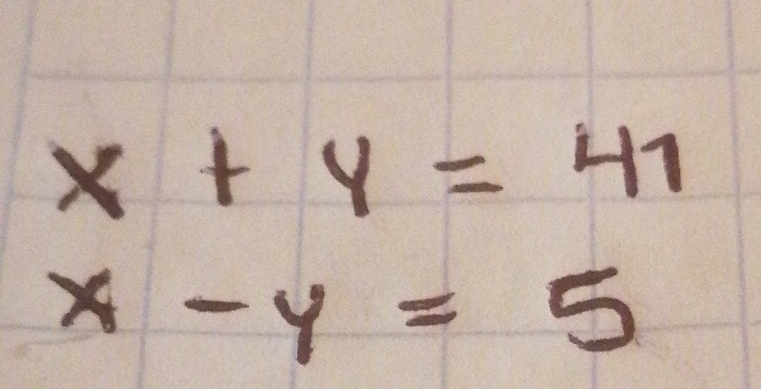 x + y = 41
x - y = 5